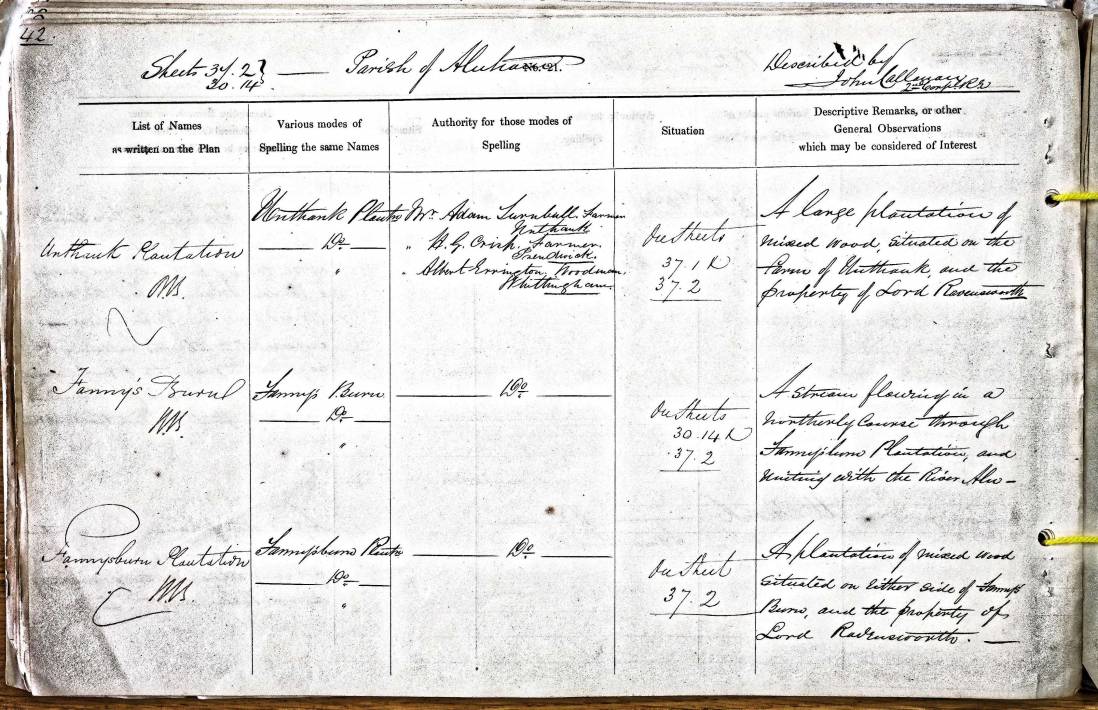 42.
Sheets 37.2 } — Parish of Alnham
30.14
No. 21.
Described by
John Callanan
2nd Corpl. R.E.
List of Names
as written on the Plan
Various modes of
Spelling the same Names
Authority for those modes of
Spelling
Situation
Descriptive Remarks, or other
General Observations
which may be considered of Interest
Unthank Plantation
Unthank Plantn
Do
"
Mr. Adam Turnbull, Farmer
Unthank
" B. G. Crisp, Farmer.
Prendwick.
" Albert Errington, Woodman,
Whittingham.
On Sheets
37.1
37.2
A large plantation of
mixed wood, situated on the
Farm of Unthank, and the
property of Lord Ravensworth
Fanny's Burn
Fannys Burn
Do
"
Do
On Sheets
30.14
37.2
A stream flowing in a
Northerly Course through
Fannysburn Plantation, and
uniting with the River Aln —
Fannysburn Plantation
Fannysburn Plantn
Do
"
Do
On Sheet
37.2
A plantation of mixed wood
situated on either side of Fannys
Burn, and the property of
Lord Ravensworth. —